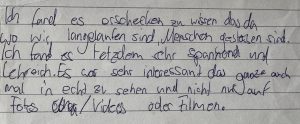 Ich fand es erschrecken zu wissen das da
wo wir langelaufen sind, Menschen gestorben sind.
Ich fand es tetzdem sehr spannend und
Lehreich. Es war sehr interessant das ganze auch
mal in echt zu sehen und nicht nur auf
Fotos / Videos oder filmen.